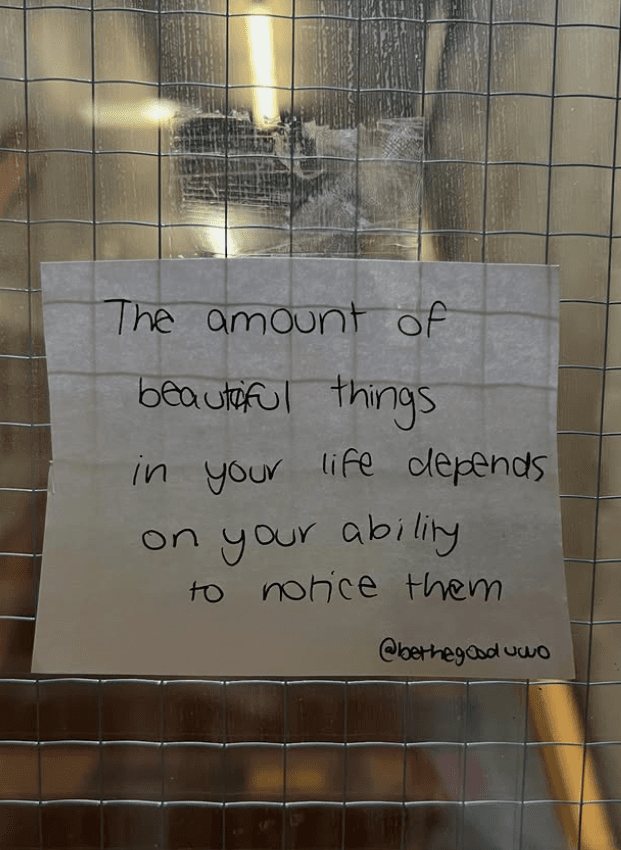 The amount of
beautiful things
in your life depends
on your ability
to notice them
@bethegooduwo